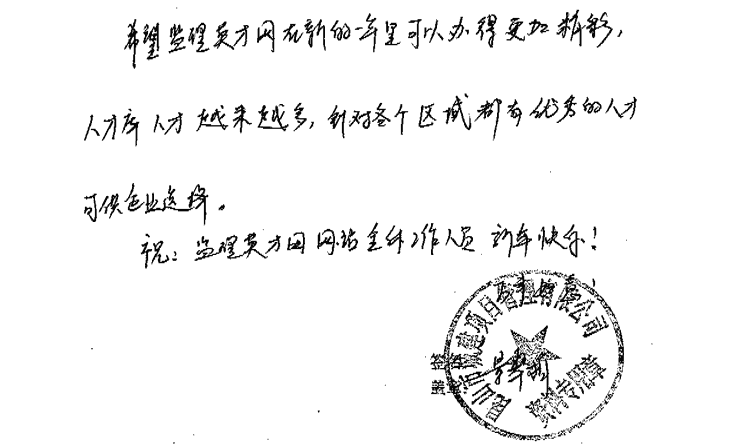 希望监理英才网在新的一年里可以办得更加精彩，
人才库人才越来越多，针对各个区域都有优秀的人才
可供企业选择。
祝：监理英才网网站全体工作人员 新年快乐！
万事如意！
昆山市城建项目管理有限公司
签名
盖章
资料专用章